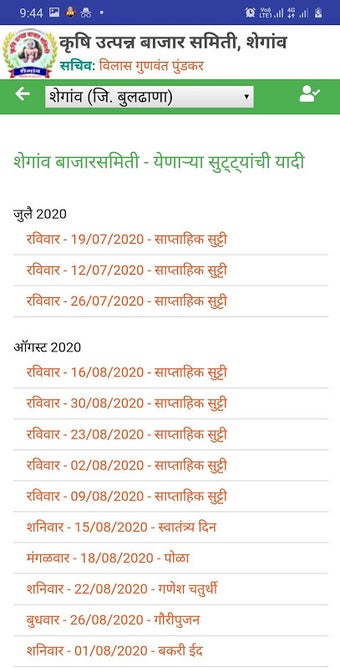 9:44
कृषि उत्पन्न बाजार समिती, शेगांव
सचिव: विलास गुणवंत पुंडकर
शेगांव (जि. बुलढाणा)
शेगांव बाजारसमिती - येणाऱ्या सुट्ट्यांची यादी
जुलै 2020
रविवार - 19/07/2020 - साप्ताहिक सुट्टी
रविवार - 12/07/2020 - साप्ताहिक सुट्टी
रविवार - 26/07/2020 - साप्ताहिक सुट्टी
ऑगस्ट 2020
रविवार - 16/08/2020 - साप्ताहिक सुट्टी
रविवार - 30/08/2020 - साप्ताहिक सुट्टी
रविवार - 23/08/2020 - साप्ताहिक सुट्टी
रविवार - 02/08/2020 - साप्ताहिक सुट्टी
रविवार - 09/08/2020 - साप्ताहिक सुट्टी
शनिवार - 15/08/2020 - स्वातंत्र्य दिन
मंगळवार - 18/08/2020 - पोळा
शनिवार - 22/08/2020 - गणेश चतुर्थी
बुधवार - 26/08/2020 - गौरीपुजन
शनिवार - 01/08/2020 - बकरी ईद